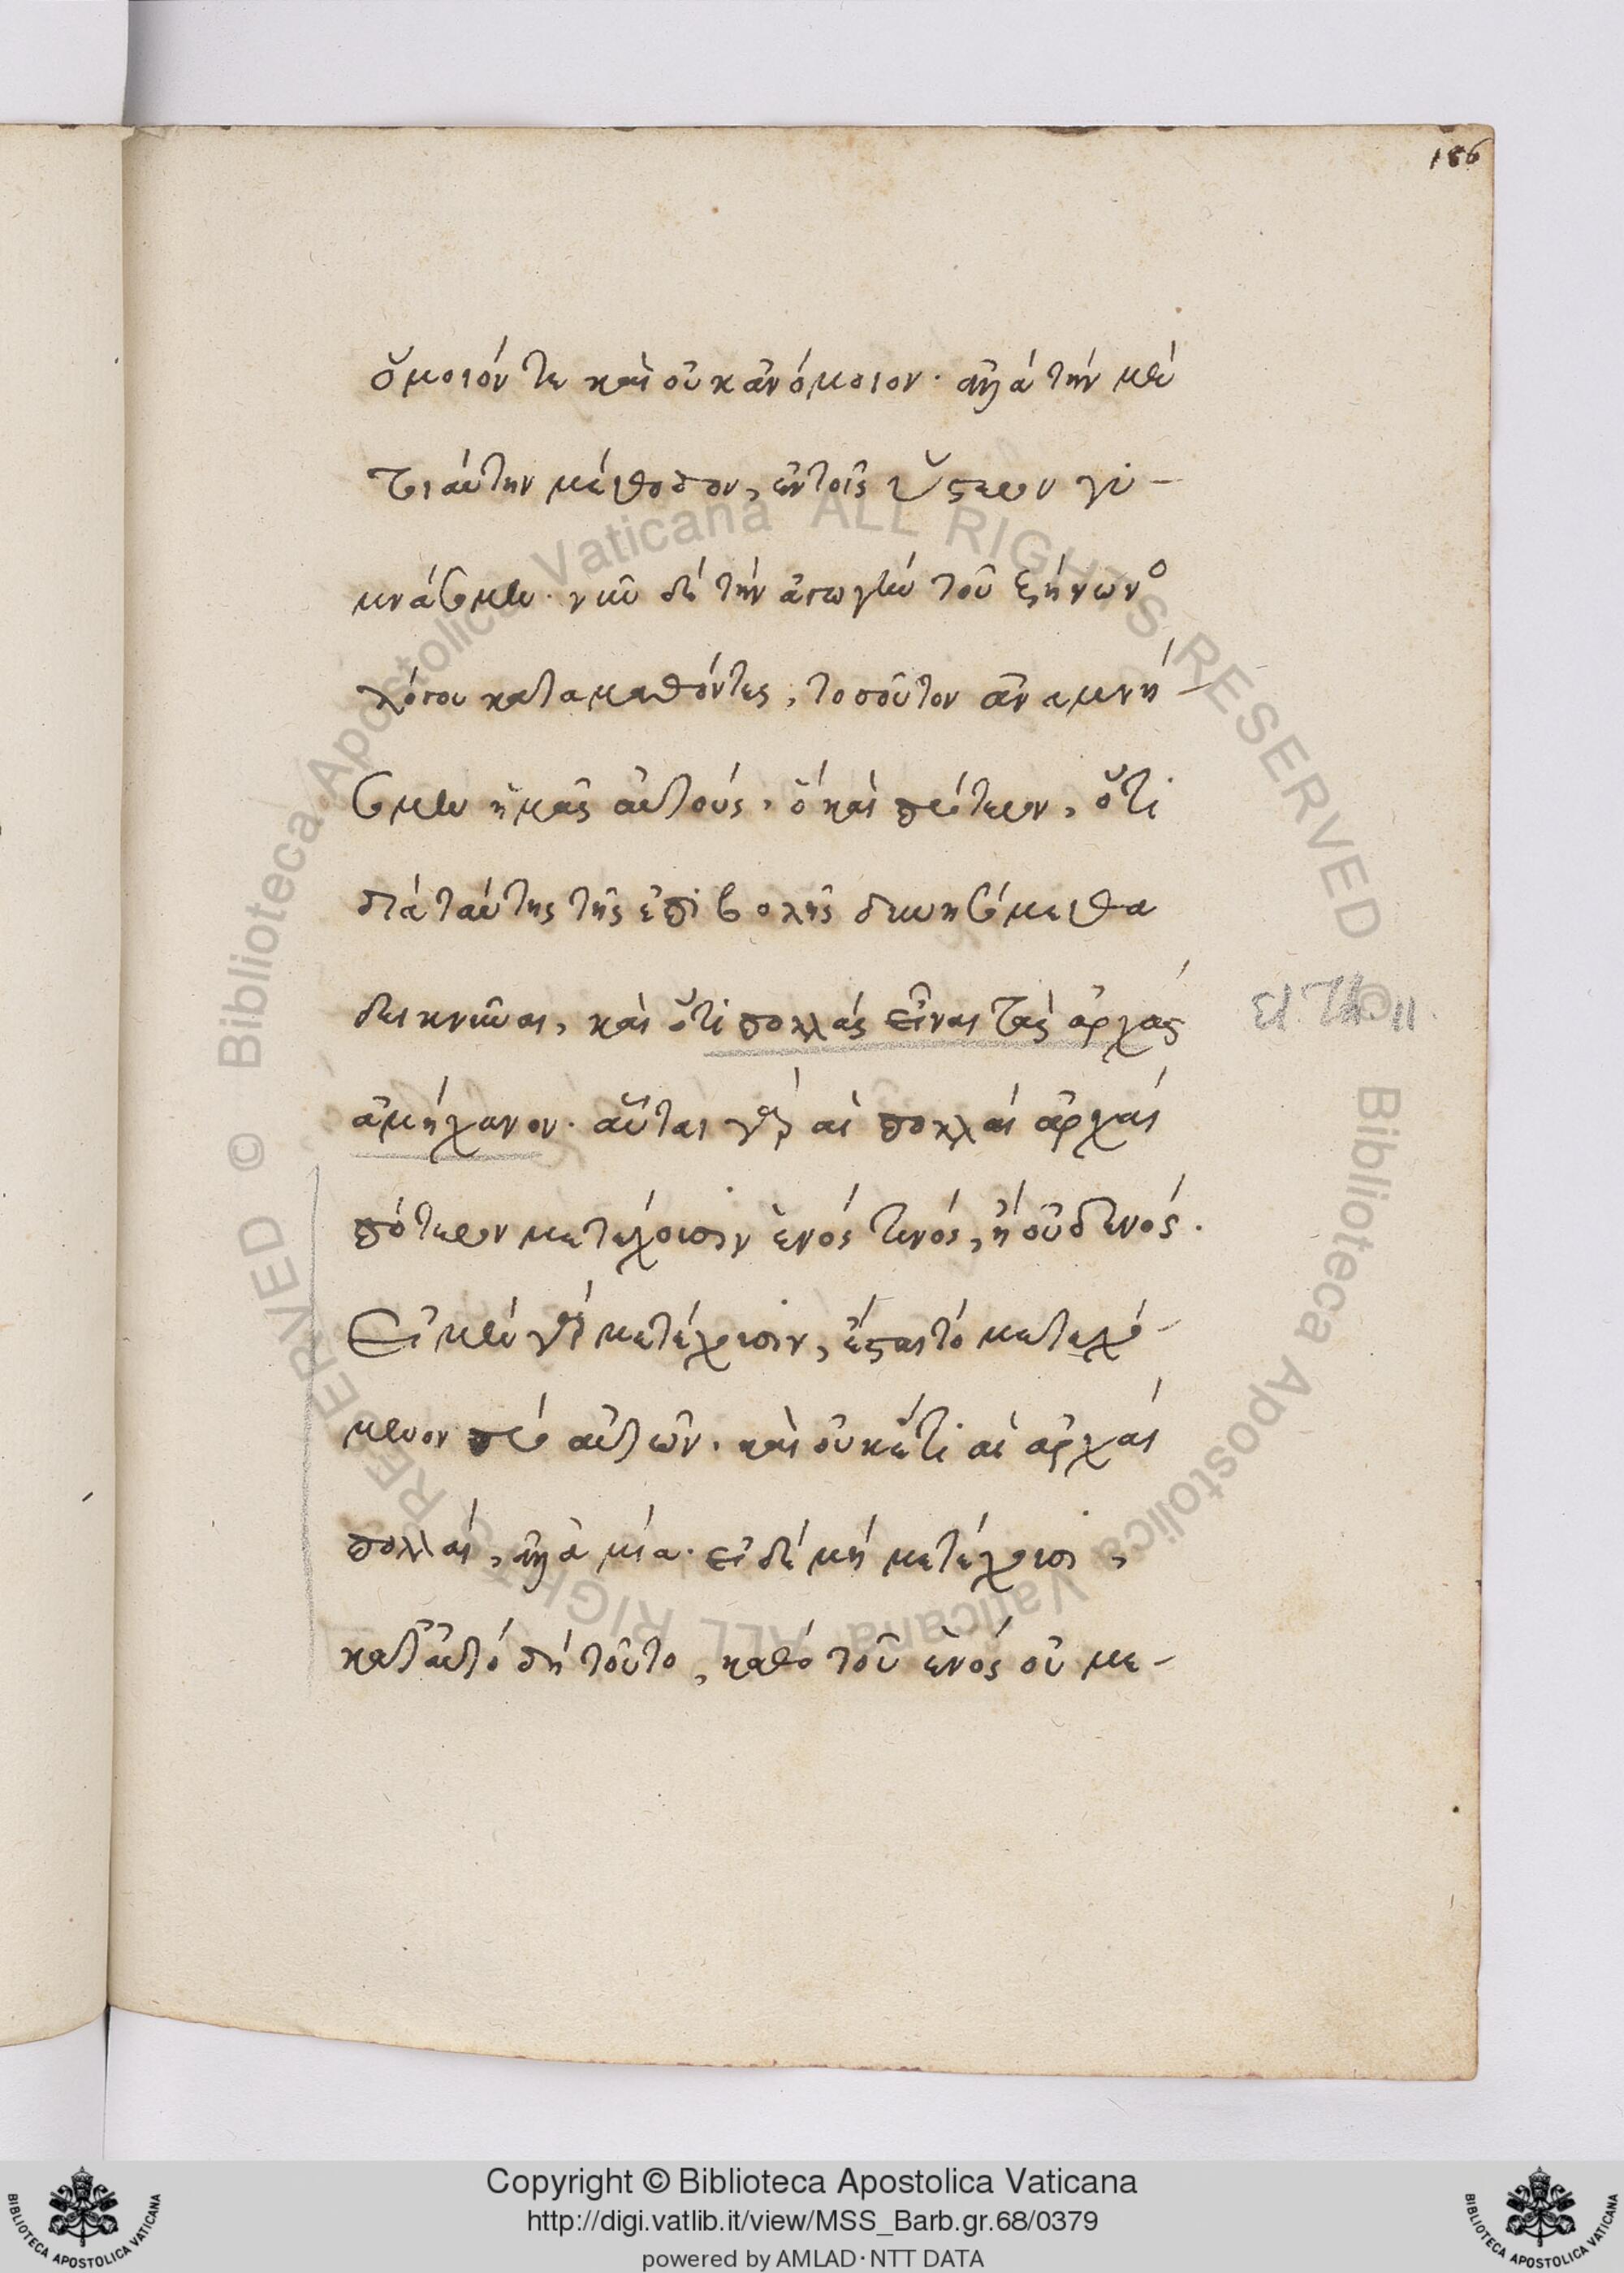 186
ὅμοιόν τε καὶ οὐκ ἀνόμοιον· ἀλλὰ τὴν μὲν
τοιαύτην μέθοδον, ἐν τοῖς ὕστερον γυ-
μνάσομεν. νῦν δὲ τὴν ἀγωγὴν τοῦ Ζήνωνο
λόγου καταμαθόντες, τοσοῦτον ἀναμνή-
σομεν ἡμᾶς αὐτούς, ὃ καὶ πρότερον, ὅτι
διὰ ταύτης τῆς ἐπιβολῆς δυνησόμεθα
δεικνύναι, καὶ ὅτι πολλὰς εἶναι τὰς ἀρχὰς
ἀμήχανον. αὗται γὰρ αἱ πολλαὶ ἀρχαὶ
πότερον μετέχουσιν ἑνός τινός, ἢ οὐδενός.
Εἰ μὲν γὰρ μετέχουσιν, ἔσται τὸ μετεχό-
μενον πρὸ αὐτῶν. καὶ οὐκέτι αἱ ἀρχαὶ
πολλαί, ἀλλὰ μία. εἰ δὲ μὴ μετέχουσι,
κατ' αὐτὸ δὴ τοῦτο, καθὸ τοῦ ἑνός οὐ με-
Copyright © Biblioteca Apostolica Vaticana
http://digi.vatlib.it/view/MSS_Barb.gr.68/0379
powered by AMLAD·NTT DATA
BIBLIOTECA APOSTOLICA VATICANA
BIBLIOTECA APOSTOLICA VATICANA
© Biblioteca Apostolica Vaticana ALL RIGHTS RESERVED
© Biblioteca Apostolica Vaticana ALL RIGHTS RESERVED